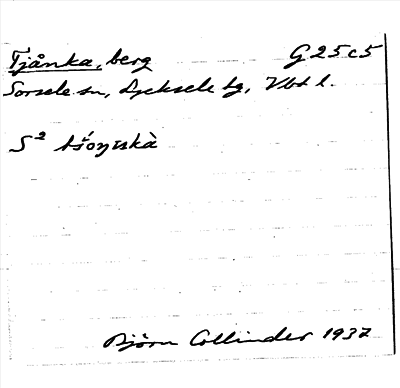 Tjånka, berg G 25 c 5
Sorsele sn, Lycksele tg, Vbt l.
S²
Björn Collinder 1937